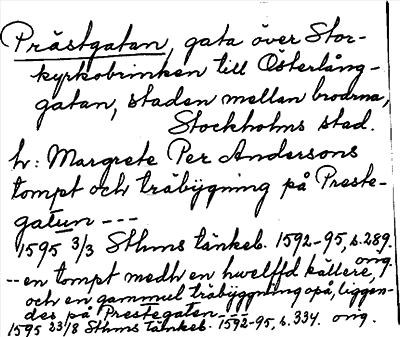 Prästgatan, gata över Stor-
kyrkobrinken till Österlång-
gatan, staden mellan broarna,
Stockholms stad.
h: Margrete Per Andersons
tompt och träbÿgning på Preste-
gatun ---
1595 3/3 Sthms tänkeb. 1592-95, s. 289.
orig.
-- en tompt medh en hwelffd källere,
och en gammul träbÿggning opå, liggen-
des på Prestegaten--
1595 23/8 Sthms tänkeb. 1592-95, s. 334. orig.